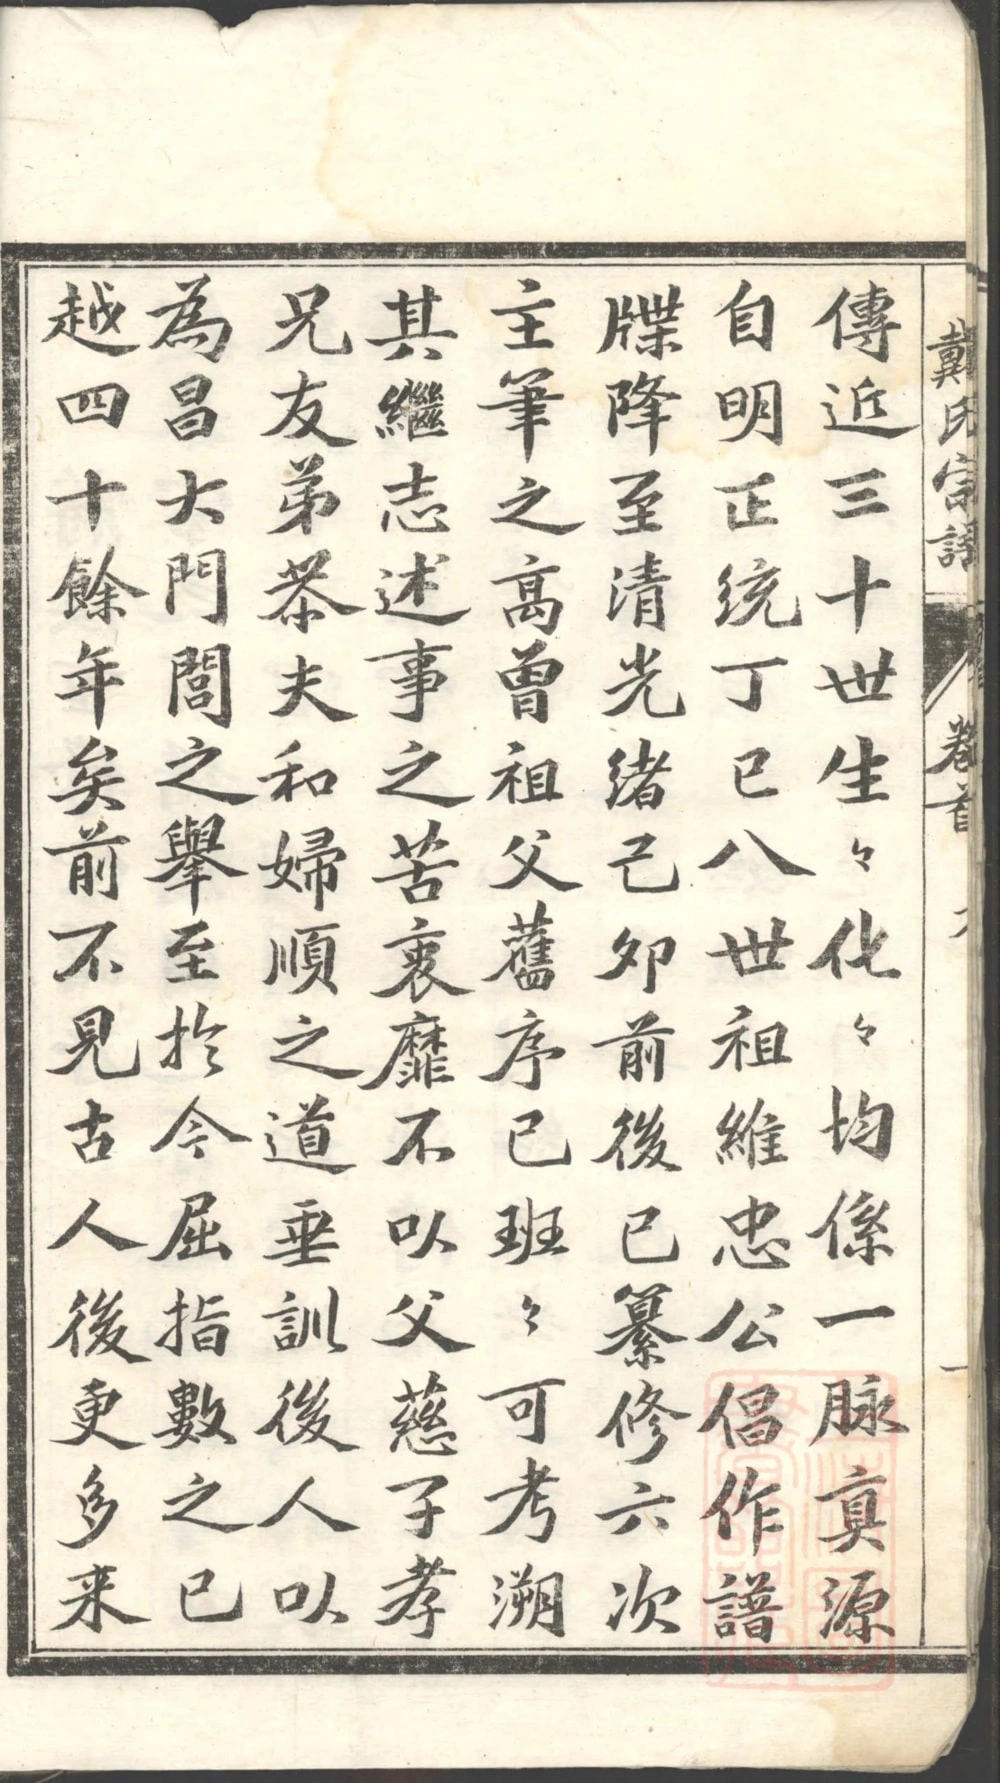 戴氏宗譜
卷首
傳近三十世生々化々均係一脉真源
自明正統丁巳八世祖維忠公倡作譜
牒降至清光緒己夘前後已纂修六次
主筆之高曾祖父舊序已班々可考溯
其繼志述事之苦衷靡不以父慈子孝
兄友弟恭夫和婦順之道垂訓後人以
為昌大門閭之舉至於今屈指數之已
越四十餘年矣前不見古人後更多来